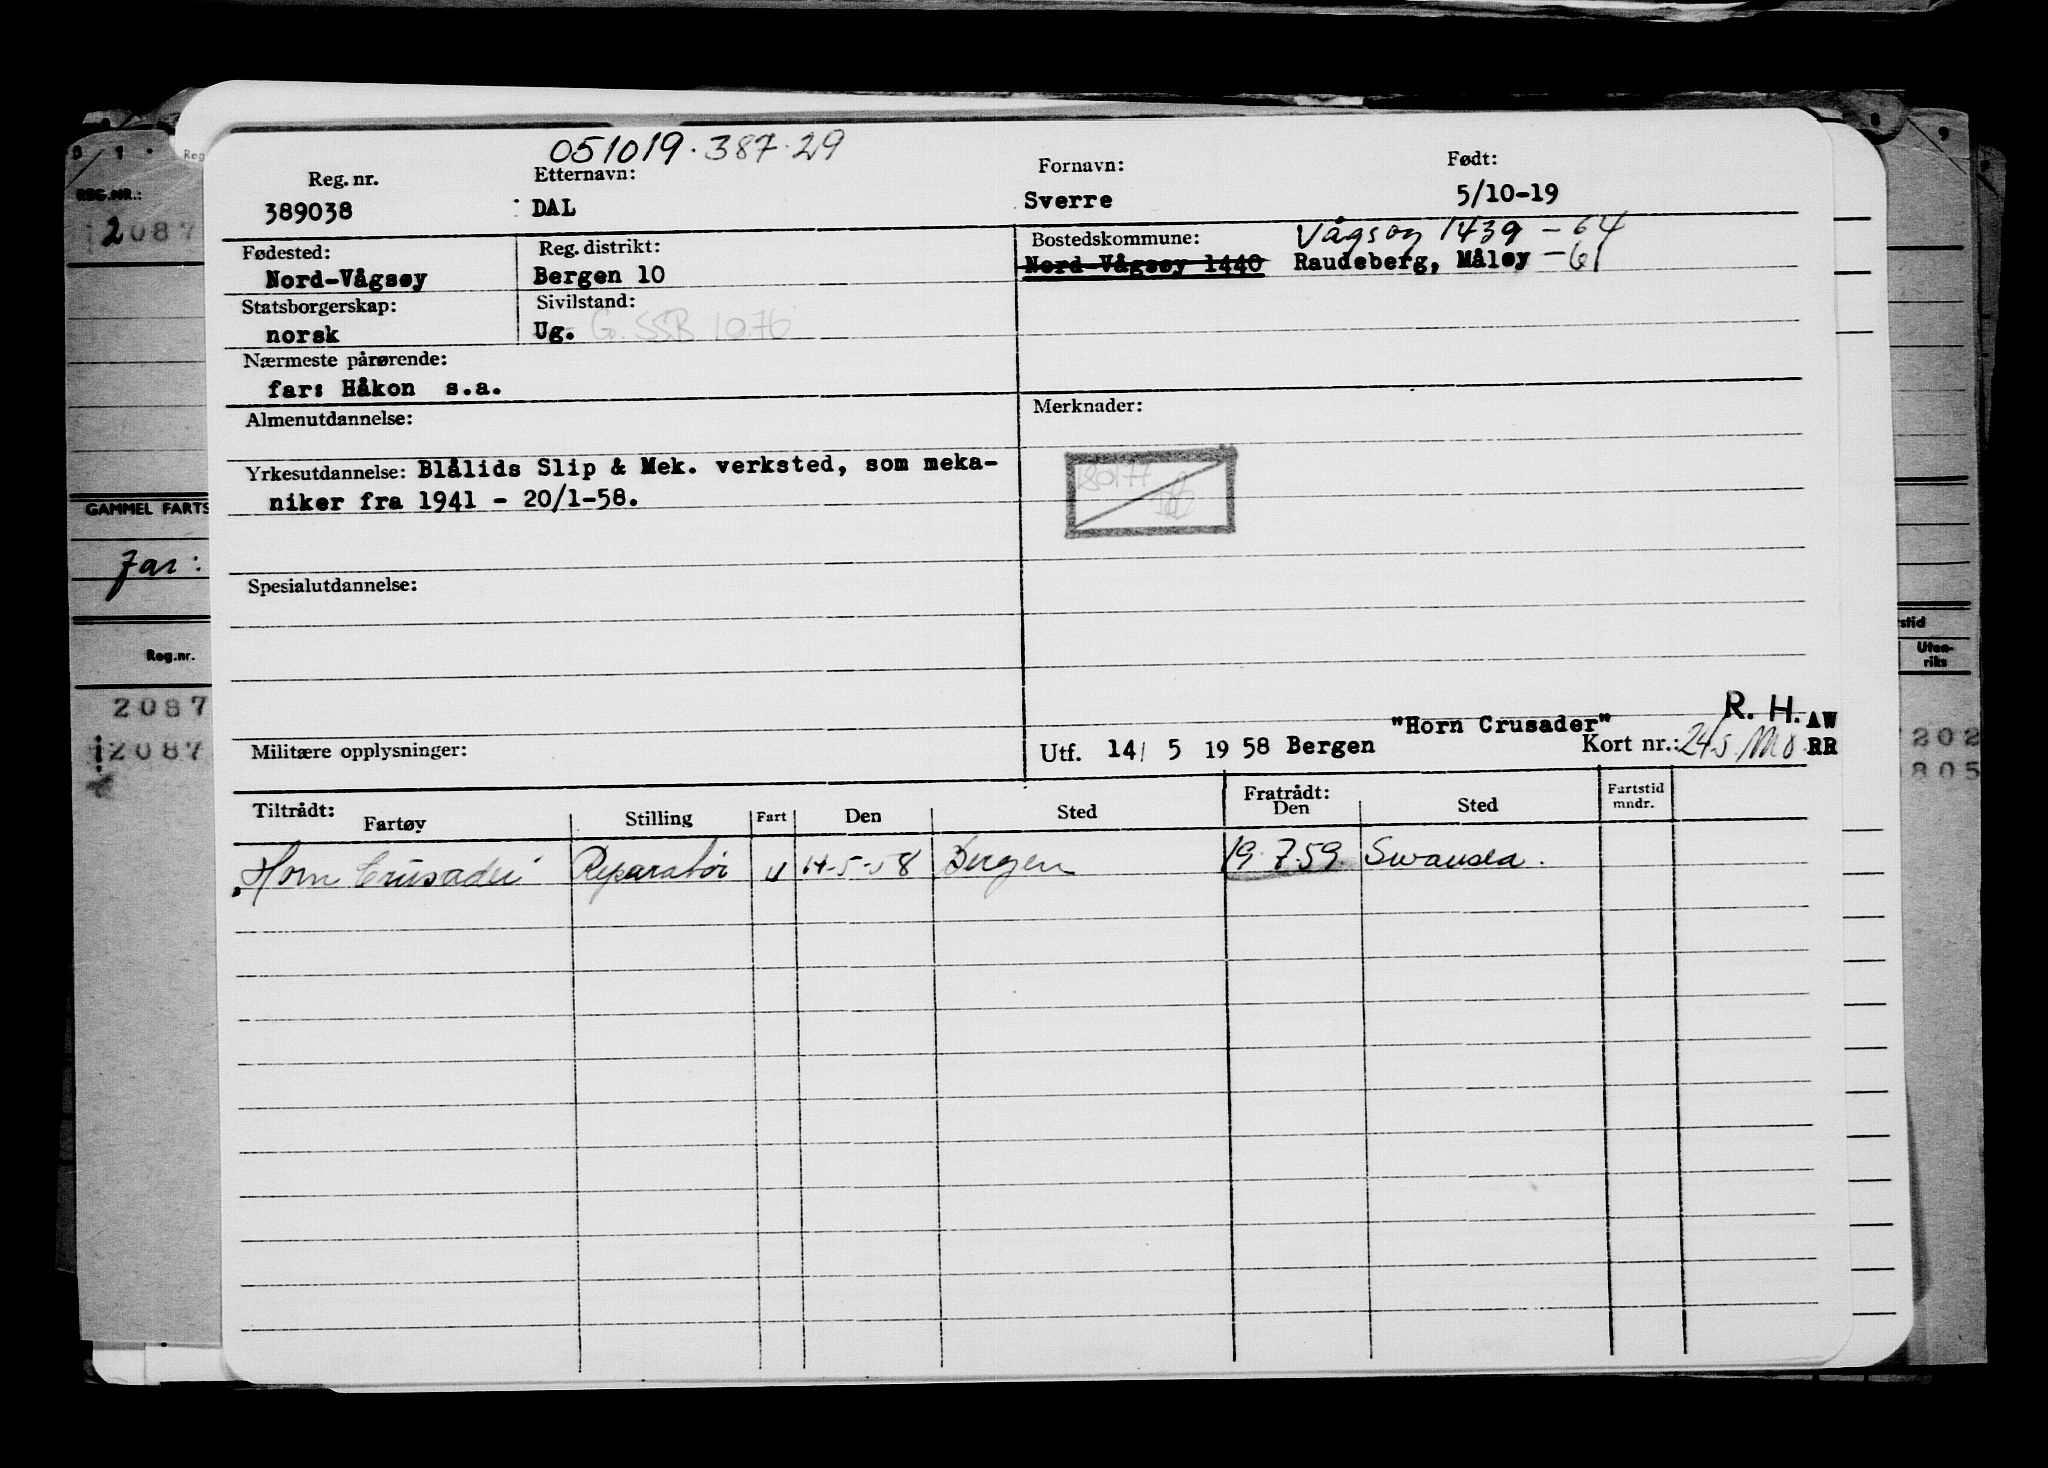 051019.387.29
Reg. nr. Etternavn: Fornavn: Født:
389038 DAL Sverre 5/10-19
Fødested: Reg. distrikt: Bostedskommune: Vågsøy 1439 - 64
Nord-Vågsøy Bergen 10 Nord-Vågsøy 1440 Raudeberg, Måløy - 61
Statsborgerskap: Sivilstand:
norsk Ug. G. SSB 1076
Nærmeste pårørende:
far: Håkon s.a.
Almenutdannelse: Merknader:
Yrkesutdannelse: Blålids Slip & Mek. verksted, som meka-
niker fra 1941 - 20/1-58.
180177
Spesialutdannelse:
R. H. AW
"Horn Crusader"
Militære opplysninger: Utf. 14/ 5 1958 Bergen Kort nr.: RR
Tiltrådt: Fratrådt: Fartstid
Fartøy Stilling Fart Den Sted Den Sted mndr.
"Horn Crusader" Reparatør U 14-5-58 Bergen 19.7.59. Swansea.
Reg
REG.NR.:
2087
GAMMEL FARTS
Far:
Reg.nr.
2087
2087
9
stid
Uten-
riks
202
805